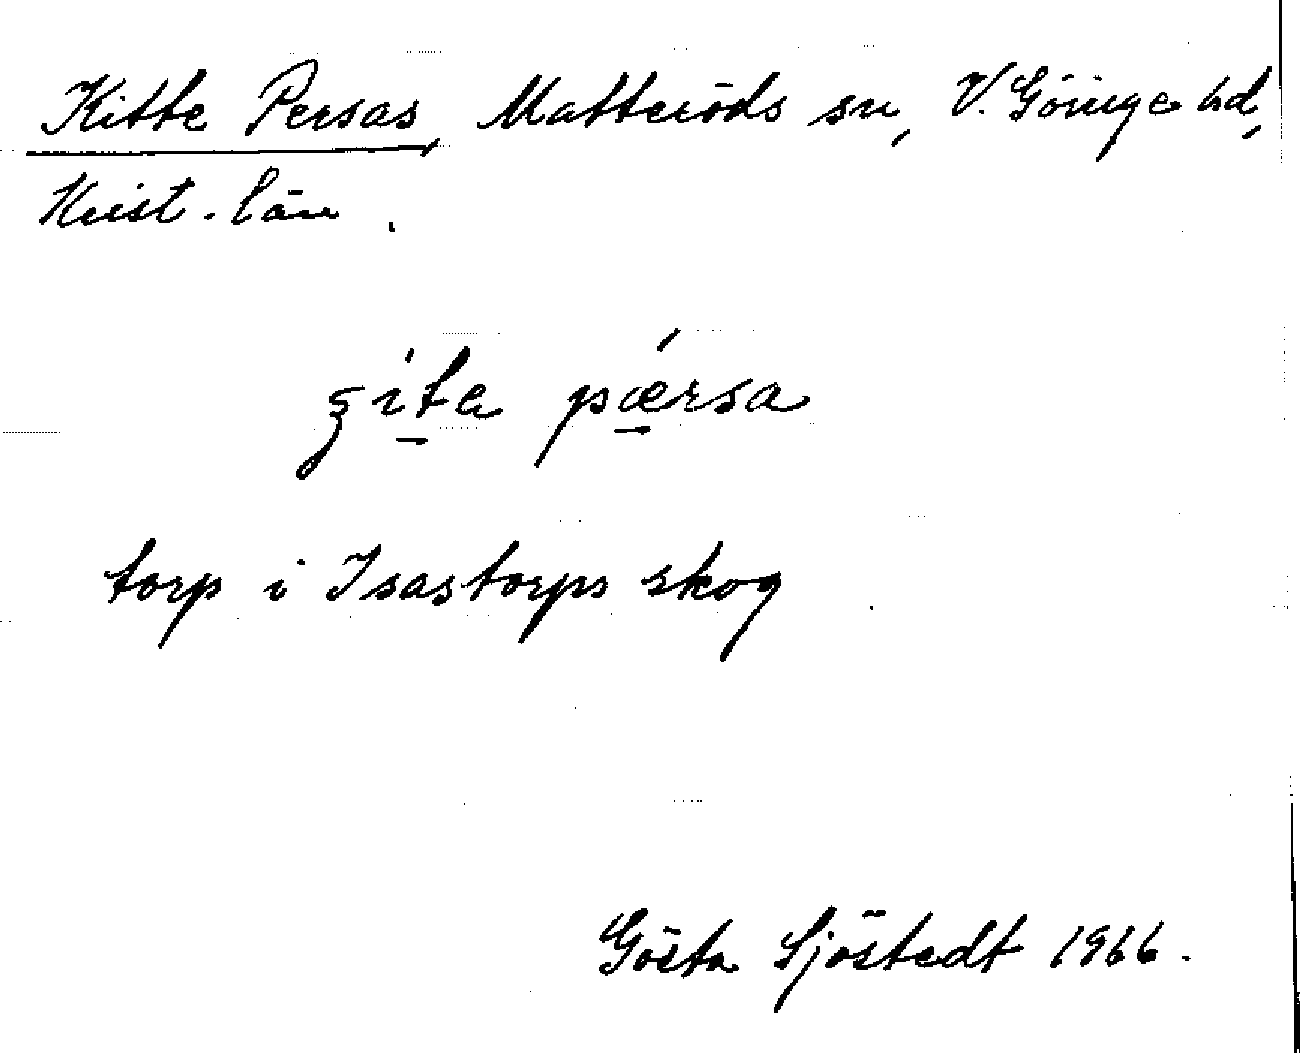 Kitte Persas, Matteröds sn, V. Göinge hd,
Krist. län.
ʒíta pǽrsa
torp i Isastorps skog
Gösta Sjöstedt 1966.